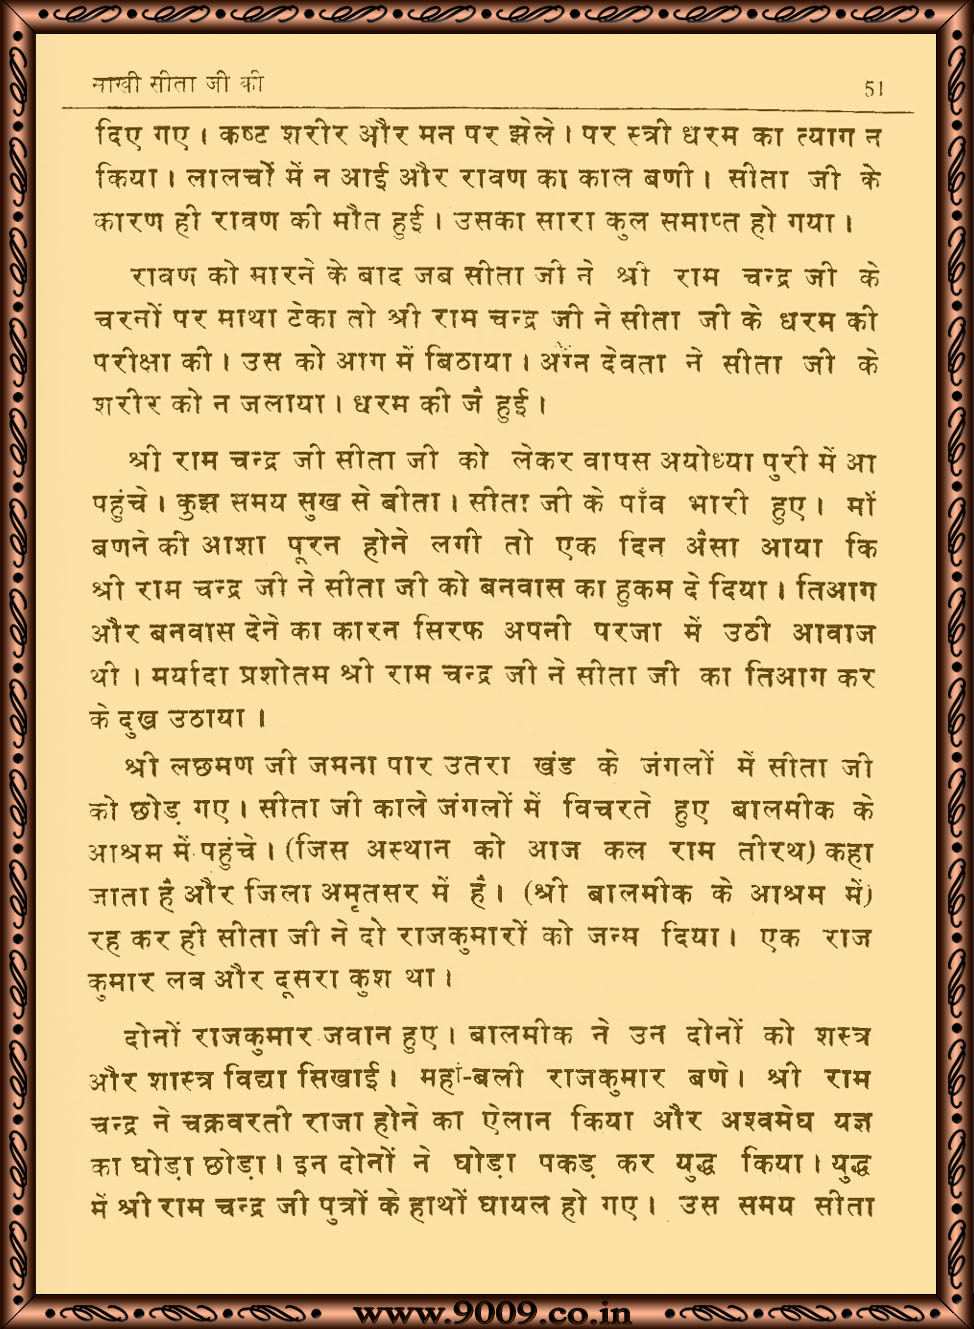 साखी सीता जी की
51
दिए गए । कष्ट शरीर और मन पर झेले । पर स्त्री धरम का त्याग न
किया । लालचों में न आई और रावण का काल बणी । सीता जी के
कारण ही रावण की मौत हुई । उसका सारा कुल समाप्त हो गया ।
रावण को मारने के बाद जब सीता जी ने श्री राम चन्द्र जी के
चरनों पर माथा टेका तो श्री राम चन्द्र जी ने सीता जी के धरम की
परीक्षा की । उस को आग में बिठाया । अग्नि देवता ने सीता जी के
शरीर को न जलाया । धरम की जै हुई ।
श्री राम चन्द्र जी सीता जी को लेकर वापस अयोध्या पुरी में आ
पहुंचे । कुझ समय सुख से बीता । सीता जी के पाँव भारी हुए । माँ
बणने की आशा पूरन होने लगी तो एक दिन अैसा आया कि
श्री राम चन्द्र जी ने सीता जी को बनवास का हुकम दे दिया । तिआग
और बनवास देने का कारन सिरफ अपनी परजा में उठी आवाज
थी । मर्यादा प्रशोतम श्री राम चन्द्र जी ने सीता जी का तिआग कर
के दुख उठाया ।
श्री लछमण जी जमना पार उतरा खंड के जंगलों में सीता जी
को छोड़ गए । सीता जी काले जंगलों में विचरते हुए बालमीक के
आश्रम में पहुंचे । (जिस अस्थान को आज कल राम तीरथ) कहा
जाता है और जिला अमृतसर में है । (श्री बालमीक के आश्रम में)
रह कर ही सीता जी ने दो राजकुमारों को जन्म दिया । एक राज
कुमार लव और दूसरा कुश था ।
दोनों राजकुमार जवान हुए । बालमीक ने उन दोनों को शस्त्र
और शास्त्र विद्या सिखाई । महां-बली राजकुमार बणे । श्री राम
चन्द्र ने चक्रवरती राजा होने का ऐलान किया और अश्वमेघ यज्ञ
का घोड़ा छोड़ा । इन दोनों ने घोड़ा पकड़ कर युद्ध किया । युद्ध
में श्री राम चन्द्र जी पुत्रों के हाथों घायल हो गए । उस समय सीता
www.9009.co.in